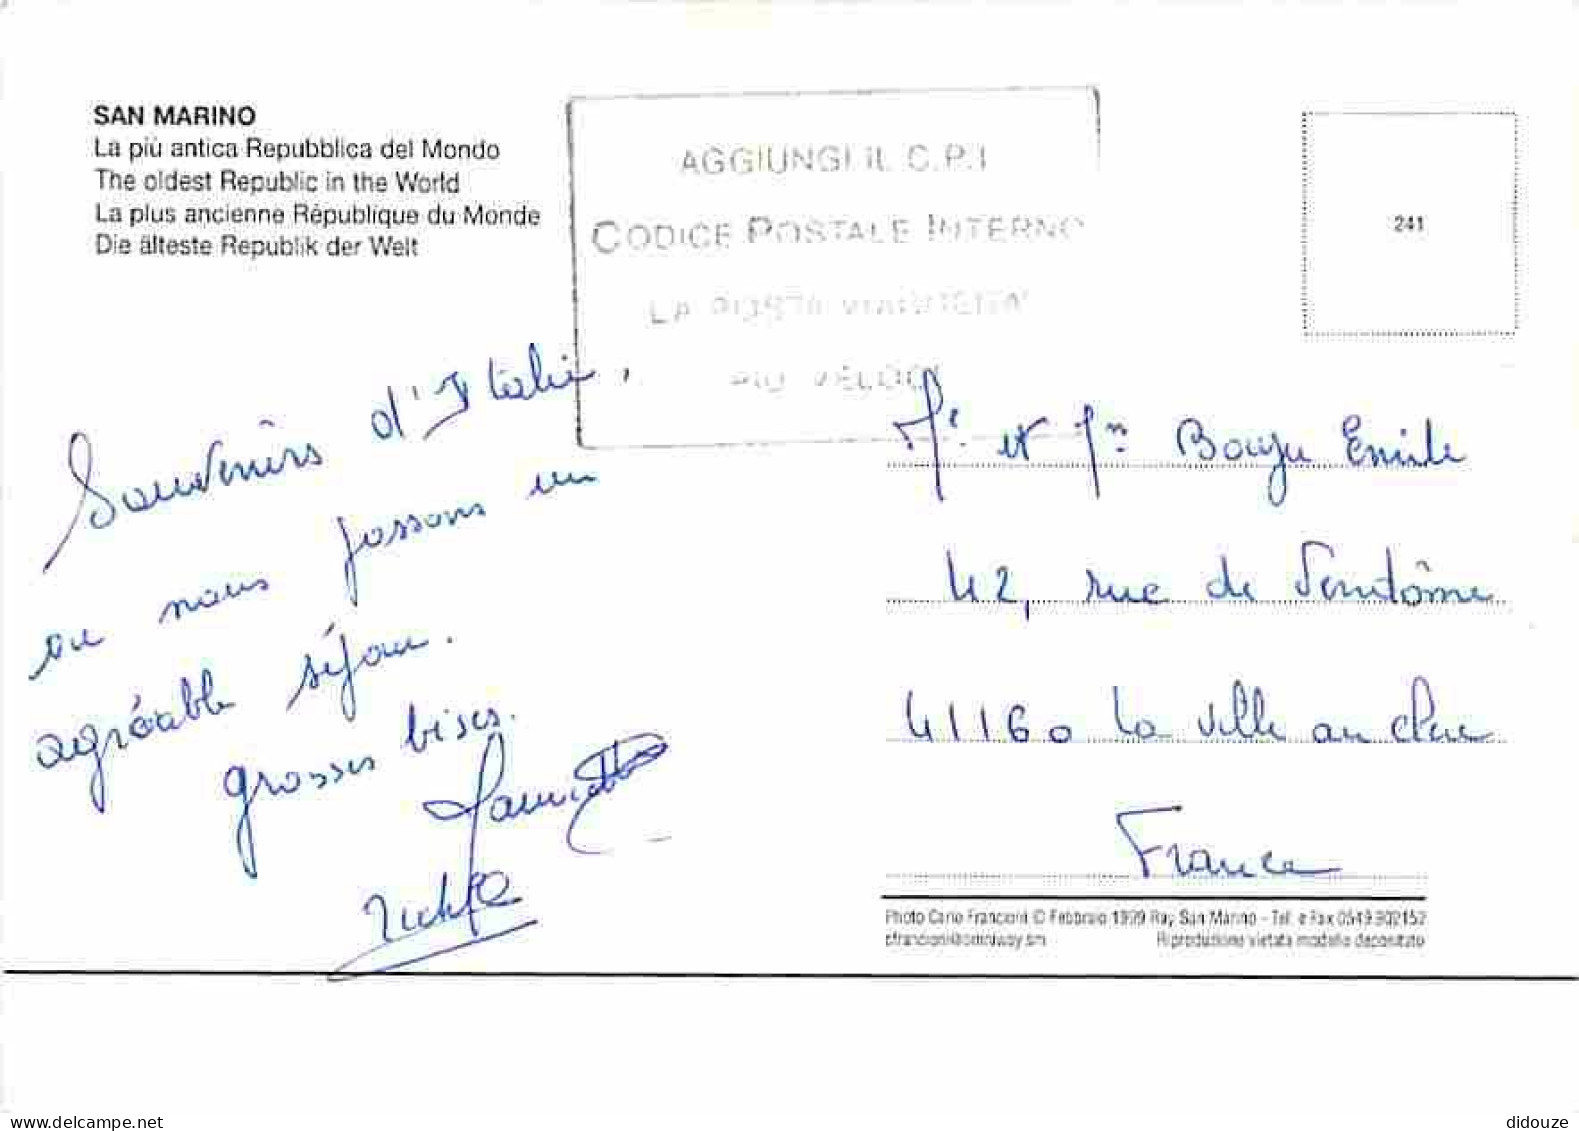 SAN MARINO
La più antica Repubblica del Mondo
The oldest Republic in the World
La plus ancienne République du Monde
Die älteste Republik der Welt
AGGIUNGI IL C.P.I
CODICE POSTALE INTERNO
LA POSTA VIAGGERA'
PIU' VELOCE
241
Souvenirs d'Italie,
ou nous passons un
agréable séjour.
grosses bises.
Mr et Mm Bouju Emile
42, rue de Vendôme
41160 La Ville au Clerc
France
Photo Carlo Francioni © Febbraio 1999 Rsy San Marino - Tel. e Fax 0549.902152
cfrancioni@omniway.sm
Riproduzione vietata modello depositato
delcampe.net
didouze